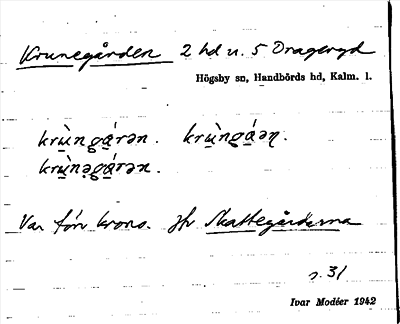 Krunegården 2 hd u. 5 Drageryd
Högsby sn, Handbörds hd, Kalm. l.
krùngárən. krùngáəɳ.
krùnəgárən.
Var förr krono. Jfr Skattegårdarna
s. 31
Ivar Modéer 1942